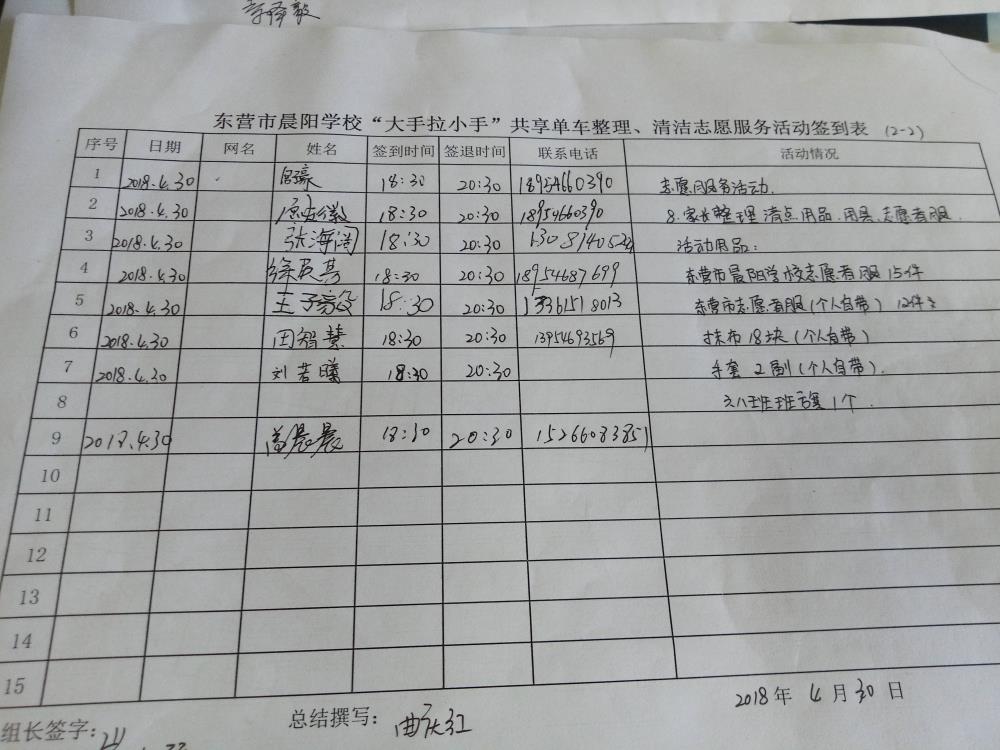 东营市晨阳学校“大手拉小手”共享单车整理、清洁志愿服务活动签到表 (2-2)
序号 日期 网名 姓名 签到时间 签退时间 联系电话 活动情况
1 2018.4.30 18:30 20:30 18954660390 志愿服务活动.
2 2018.4.30 18:30 20:30 18954660390 8.家长整理 清点用品.用具.志愿者服.
3 2018.4.30 张海阔 18:30 20:30 活动用品:
4 2018.4.30 18:30 20:30 18954687699 东营市晨阳学校志愿者服 15件
5 2018.4.30 18:30 20:30 东营市志愿者服(个人自带) 12件
6 2018.4.30 田智慧 18:30 20:30 13954693569 抹布 18块(个人自带)
7 2018.4.30 刘若曦 18:30 20:30 手套 2副(个人自带).
8 1个.
9 2018.4.30 18:30 20:30 15266083851
10
11
12
13
14
15
2018年 4月30日
组长签字: 总结撰写: 曲庆红